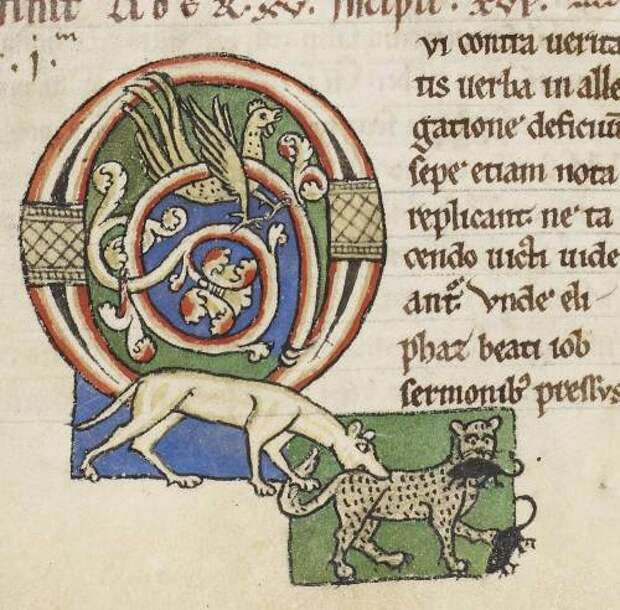 incipit . xvi .
. j . m
Q
vi contra uerita
tis uerba in alle
gatione deficiūt
sepe etiam nota
replicant ne ta
cendo uicti uide
ant᷑ . Vnde eli
phaz beati iob
sermonib᷒ pressus